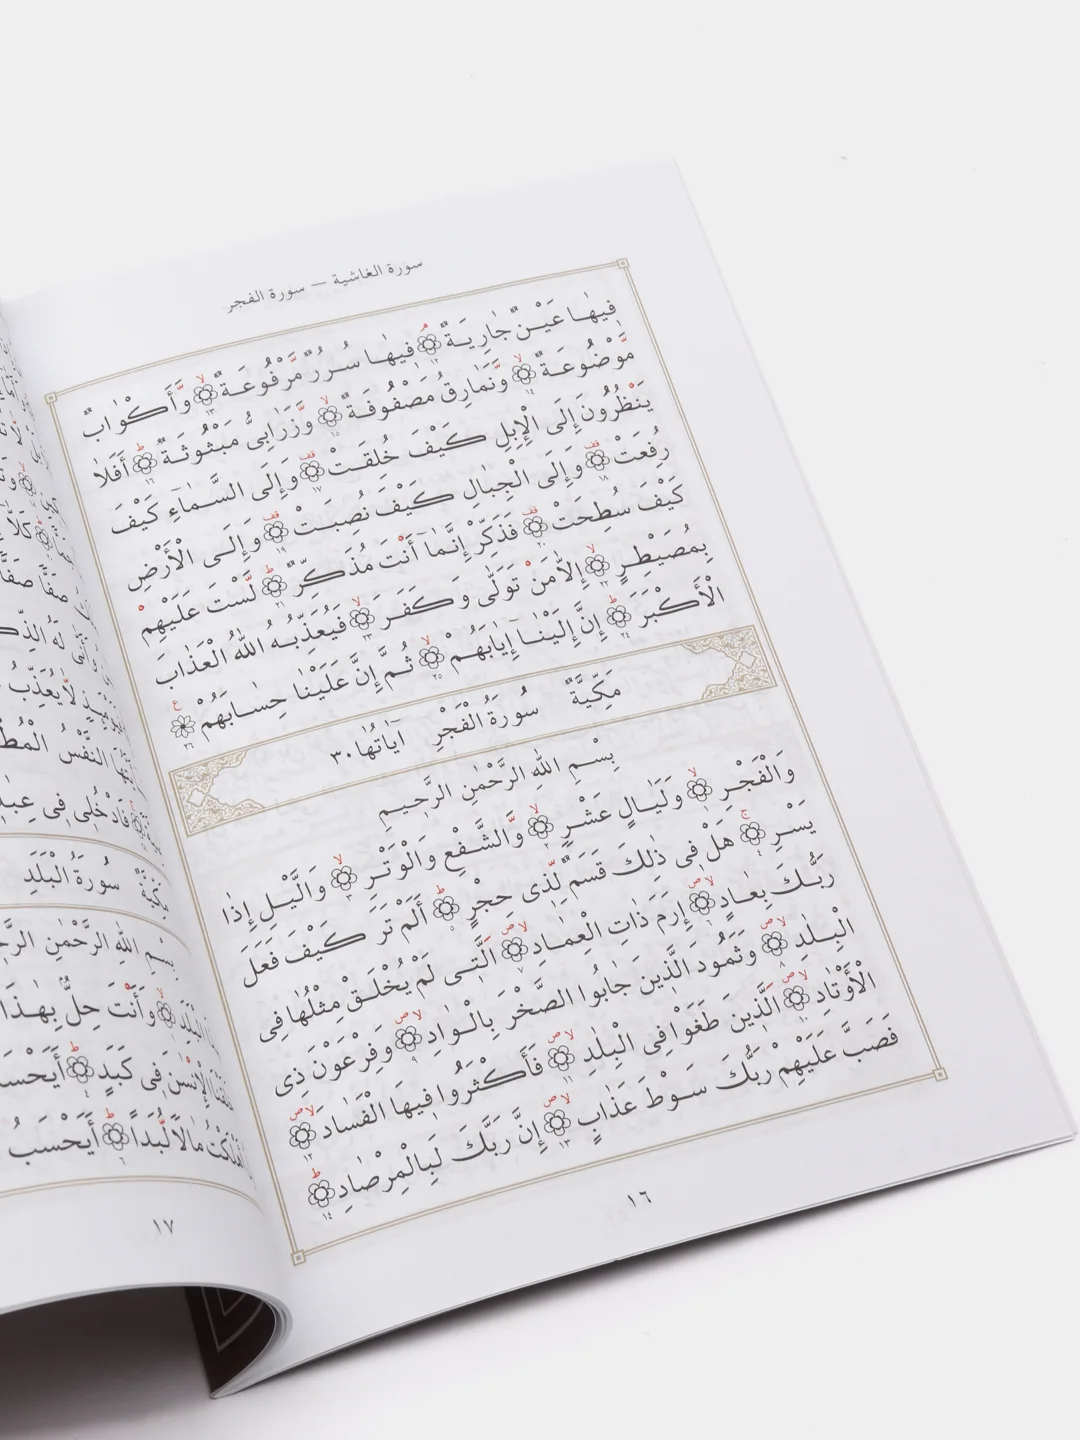 سورة الغاشية — سورة الفجر
فِيهَا عَيْنٌ جَارِيَةٌ ۝١٢ فِيهَا سُرُرٌ مَّرْفُوعَةٌ ۝١٣ وَّأَكْوَابٌ
مَّوْضُوعَةٌ ۝١٤ وَّنَمَارِقُ مَصْفُوفَةٌ ۝١٥ وَّزَرَابِىُّ مَبْثُوثَةٌ ۝١٦ أَفَلَا
يَنْظُرُونَ إِلَى الْإِبِلِ كَيْفَ خُلِقَتْ ۝١٧ وَإِلَى السَّمَآءِ كَيْفَ
رُفِعَتْ ۝١٨ وَإِلَى الْجِبَالِ كَيْفَ نُصِبَتْ ۝١٩ وَإِلَى الْأَرْضِ
كَيْفَ سُطِحَتْ ۝٢٠ فَذَكِّرْ إِنَّمَآ أَنْتَ مُذَكِّرٌ ۝٢١ لَّسْتَ عَلَيْهِمْ
بِمُصَيْطِرٍ ۝٢٢ إِلَّا مَنْ تَوَلّٰى وَكَفَرَ ۝٢٣ فَيُعَذِّبُهُ اللّٰهُ الْعَذَابَ
الْأَكْبَرَ ۝٢٤ إِنَّ إِلَيْنَآ إِيَابَهُمْ ۝٢٥ ثُمَّ إِنَّ عَلَيْنَا حِسَابَهُمْ ۝٢٦
مَكِّيَّةٌ سُورَةُ الْفَجْرِ آيَاتُهَا ٣٠
بِسْمِ اللّٰهِ الرَّحْمٰنِ الرَّحِيمِ
وَالْفَجْرِ ۝١ وَلَيَالٍ عَشْرٍ ۝٢ وَّالشَّفْعِ وَالْوَتْرِ ۝٣ وَالَّيْلِ إِذَا
يَسْرِ ۝٤ هَلْ فِى ذٰلِكَ قَسَمٌ لِّذِى حِجْرٍ ۝٥ أَلَمْ تَرَ كَيْفَ فَعَلَ
رَبُّكَ بِعَادٍ ۝٦ إِرَمَ ذَاتِ الْعِمَادِ ۝٧ الَّتِى لَمْ يُخْلَقْ مِثْلُهَا فِى
الْبِلَادِ ۝٨ وَثَمُودَ الَّذِينَ جَابُوا الصَّخْرَ بِالْوَادِ ۝٩ وَفِرْعَوْنَ ذِى
الْأَوْتَادِ ۝١٠ الَّذِينَ طَغَوْا فِى الْبِلَادِ ۝١١ فَأَكْثَرُوا فِيهَا الْفَسَادَ ۝١٢
فَصَبَّ عَلَيْهِمْ رَبُّكَ سَوْطَ عَذَابٍ ۝١٣ إِنَّ رَبَّكَ لَبِالْمِرْصَادِ ۝١٤
١٦
كَلَّا
صَفًّا صَفًّا
لَهُ الذِّ
لَّا يُعَذِّبُ
النَّفْسُ الْمُطْ
فَادْخُلِى فِى عِبَا
مَكِّيَّةٌ سُورَةُ الْبَلَدِ
بِسْمِ اللّٰهِ الرَّحْمٰنِ الرَّ
الْبَلَدِ وَأَنْتَ حِلٌّ بِهٰذَا
خَلَقْنَا الْإِنْسٰنَ فِى كَبَدٍ ۝٤ أَيَحْسَ
أَهْلَكْتُ مَالًا لُّبَدًا ۝٦ أَيَحْسَبُ
١٧